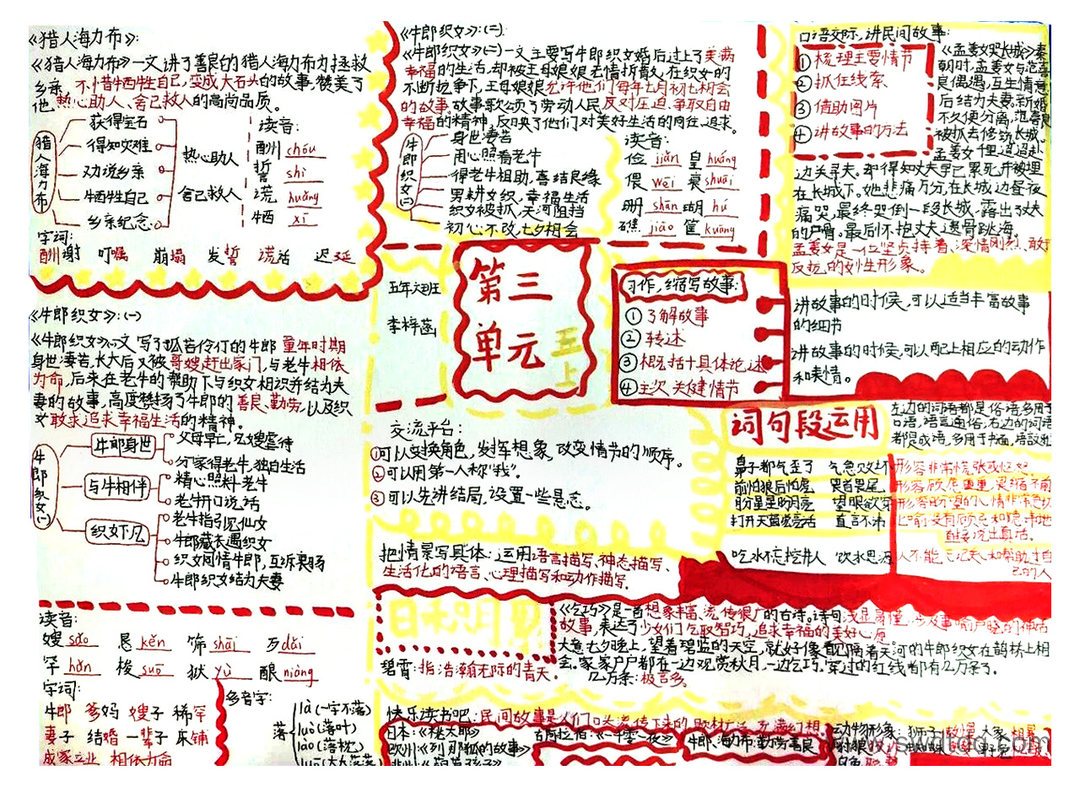 《猎人海力布》:
《猎人海力布》一文讲了善良的猎人海力布为拯救
乡亲，不惜牺牲自己，变成大石头的故事，赞美了
他，热心助人、舍己救人的高尚品质。
猎人海力布
获得宝石
得知灾难
劝说乡亲
牺牲自己
乡亲纪念
热心助人
舍己救人
读音:
酬 chóu
誓 shì
谎 huǎng
牺 xī
字词:
酬谢 叮嘱 崩塌 发誓 谎话 迟延
《牛郎织女》:(一)
身世凄苦，长大后又被哥嫂赶出家门，与老牛相依
为命，后来在老牛的帮助下与织女相识并结为夫
妻的故事，高度赞扬了牛郎的善良、勤劳，以及织
女敢求追求幸福生活的精神。
牛郎织女(一)
牛郎身世
父母早亡，兄嫂虐待
分家得老牛，独自生活
与牛相伴
精心照料老牛
老牛开口说话
织女下凡
老牛指引见仙女
牛郎藏衣遇织女
织女同情牛郎，互诉衷肠
牛郎织女结为夫妻
读音:
嫂 sǎo 恳 kěn 筛 shāi 歹 dǎi
罕 hǎn 梭 suō 狱 yù 酿 niàng
字词:
牛郎 爹妈 嫂子 稀罕
妻子 结婚 一辈子 床铺
成家立业 相依为命
多音字:
落
là (一字不落)
luò (落叶)
lào (落枕)
《牛郎织女》:(二)
《牛郎织女》(二)一文主要写牛郎织女婚后过上了美满
幸福的生活，却被王母娘娘无情拆散，在织女的
不断抗争下，王母娘娘允许他们每年七月初七相会
的故事，故事歌颂了劳动人民反对压迫、争取自由
幸福的精神，反映了他们对美好生活的向往、追求。
牛郎织女(二)
身世凄苦
用心照看老牛
得老牛相助，喜结良缘
男耕女织，幸福生活
织女被抓，天河阻挡
初心不改，七夕相会
读音:
俭 jiǎn 皇 huáng
偎 wēi 衰 shuāi
珊 shān 瑚 hú
礁 jiāo 筐 kuāng
五年六班
李梓菡
第三
单元
五上
习作，缩写故事:
①了解故事
②转述
③概括+具体论述
④主次关键情节
口语交际，讲民间故事:
①梳理主要情节
②抓住线索
③借助图片
④讲故事的方法
《孟姜女哭长城》秦
朝时，孟姜女与范喜
良偶遇，互生情意
后结为夫妻，新婚
不久便分离，范喜良
被抓去修筑长城。
孟姜女千里迢迢赴
边关寻夫，却得知丈夫早已累死并被埋
在长城下。她悲痛万分，在长城边昼夜
痛哭，最终哭倒一段长城，露出了丈夫
的尸骨。最后怀抱丈夫遗骨跳海。
孟姜女是一位坚贞持着，深情刚烈，敢于
反抗的女性形象。
讲故事的时候，可以适当丰富故事
的细节
讲故事的时候，可以配上相应的动作
和表情。
交流平台:
①可以变换角色，发挥想象，改变情节的顺序。
②可以用第一人称"我"。
③可以先讲结局，设置一些悬念。
把情景写具体:运用语言描写、神态描写、
生活化的语言、心理描写和动作描写.
词句段运用
左边的词语都是俗语多用于
口语，语言通俗，右边的词语
都是成语，多用于书面，
鼻子都气歪了 气急败坏
前怕狼后怕虎 畏首畏尾
盼星星盼月亮 望眼欲穿
打开天窗说亮话 直言不讳
吃水不忘挖井人 饮水思源
日积月累
《乞巧》是一首想象丰富、流传很广的古诗。诗句浅显易懂，
故事，表达了少女们乞取智巧，追求幸福的美好心愿
碧霄:指浩瀚无际的青天.
几万条:极言多.
快乐读书吧:民间故事是人们口头流传下来的
日本:《桃太郎》
欧洲:《列那狐的故事》
《一千零一夜》
牛郎、海力布:勤劳善良
动物形象: